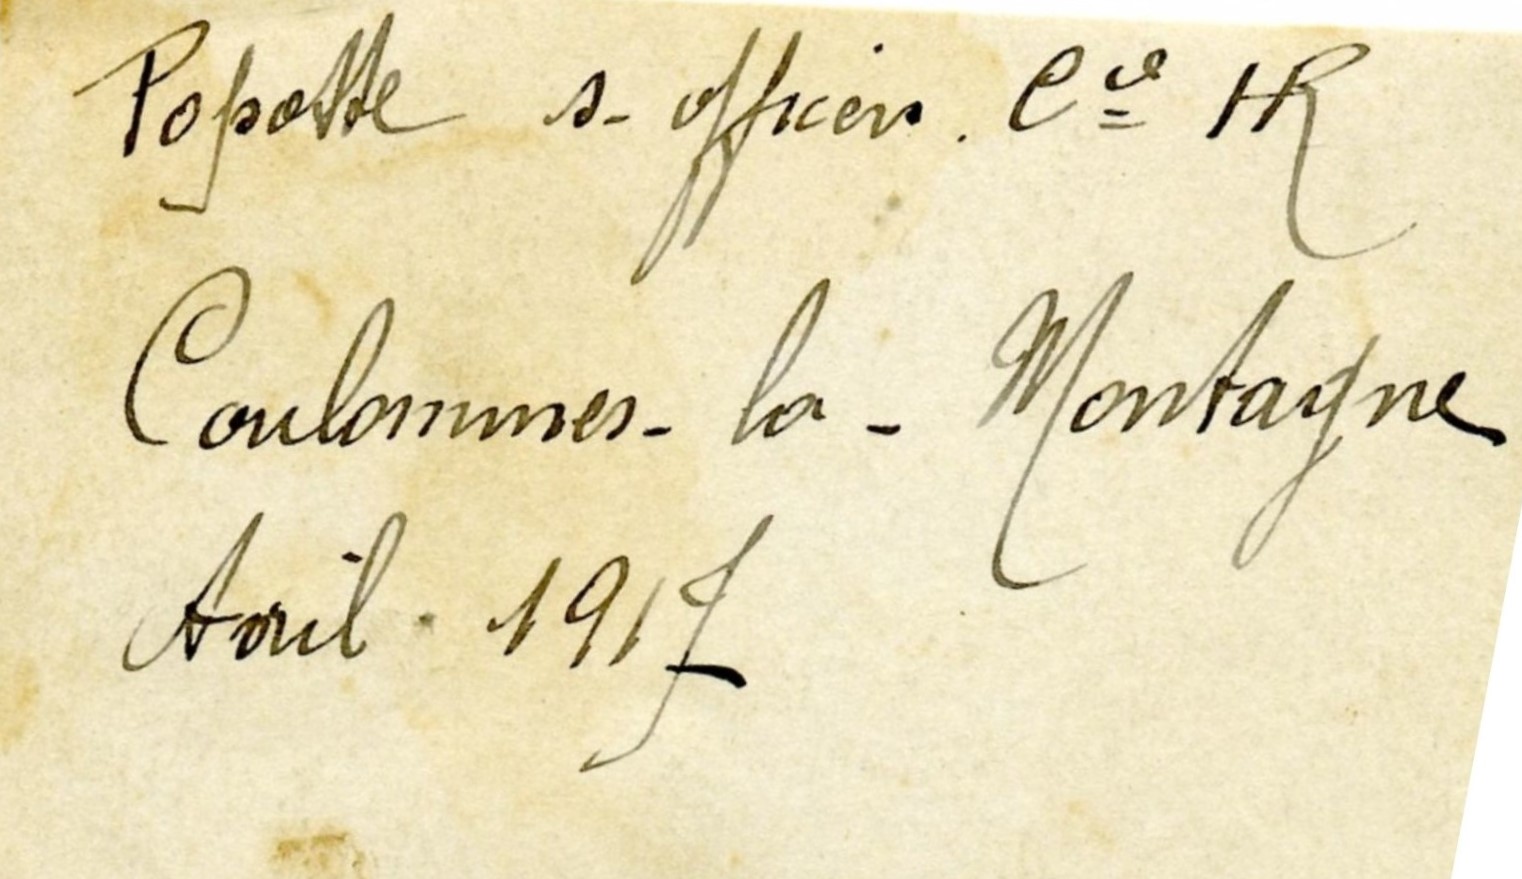 Popotte s-officiers. Cie HR
Coulommes-la-Montagne
Avril 1917